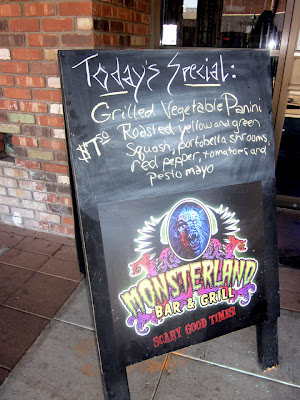 Today's Special:
Grilled Vegetable Panini
$7.50 Roasted, yellow and green
Squash, portobella shrooms,
red pepper, tomatoes and
Pesto mayo
MONSTERLAND
BAR & GRILL
SCARY GOOD TIMES!